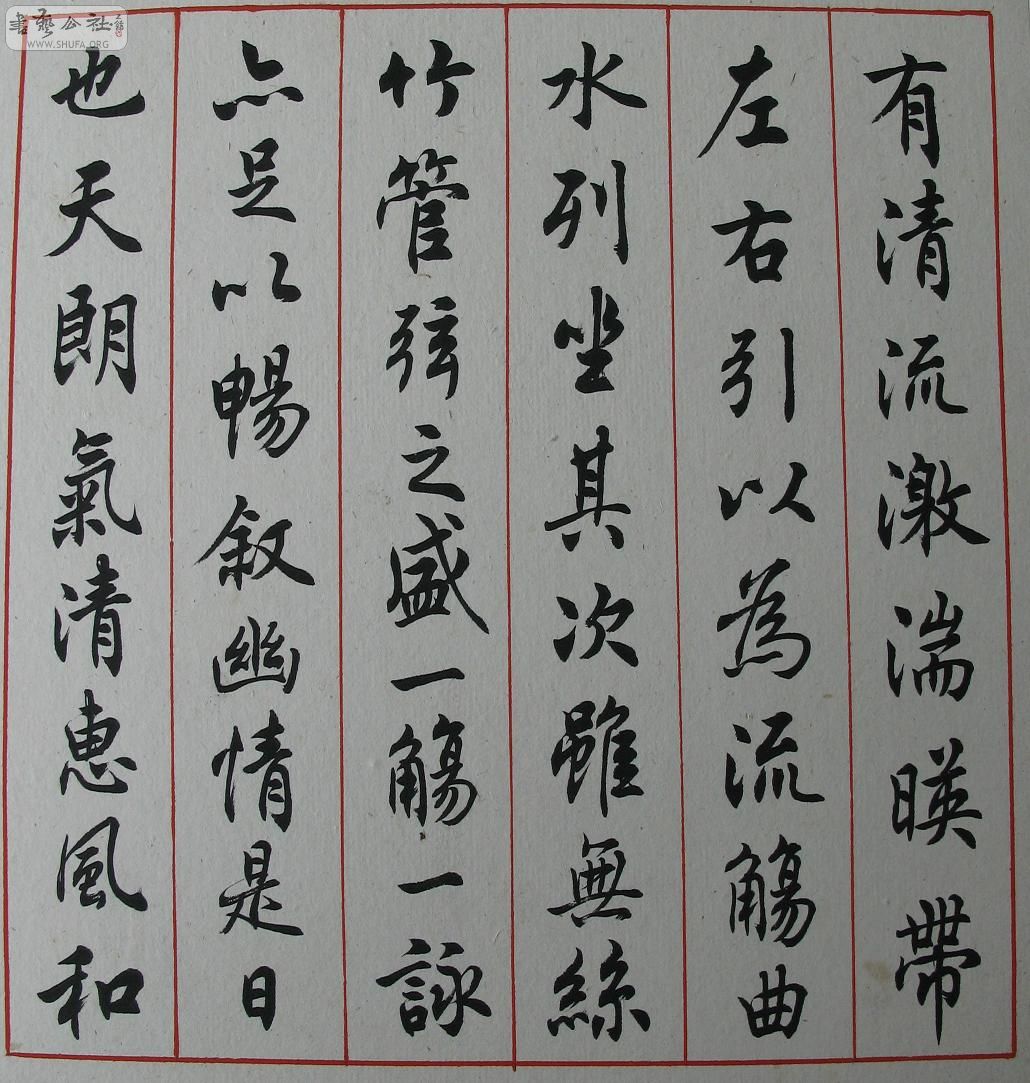 有清流激湍暎帶
左右引以為流觴曲
水列坐其次雖無絲
竹管弦之盛一觴一詠
亦足以暢敘幽情是日
也天朗氣清惠風和
書藝公社
WWW.SHUFA.ORG